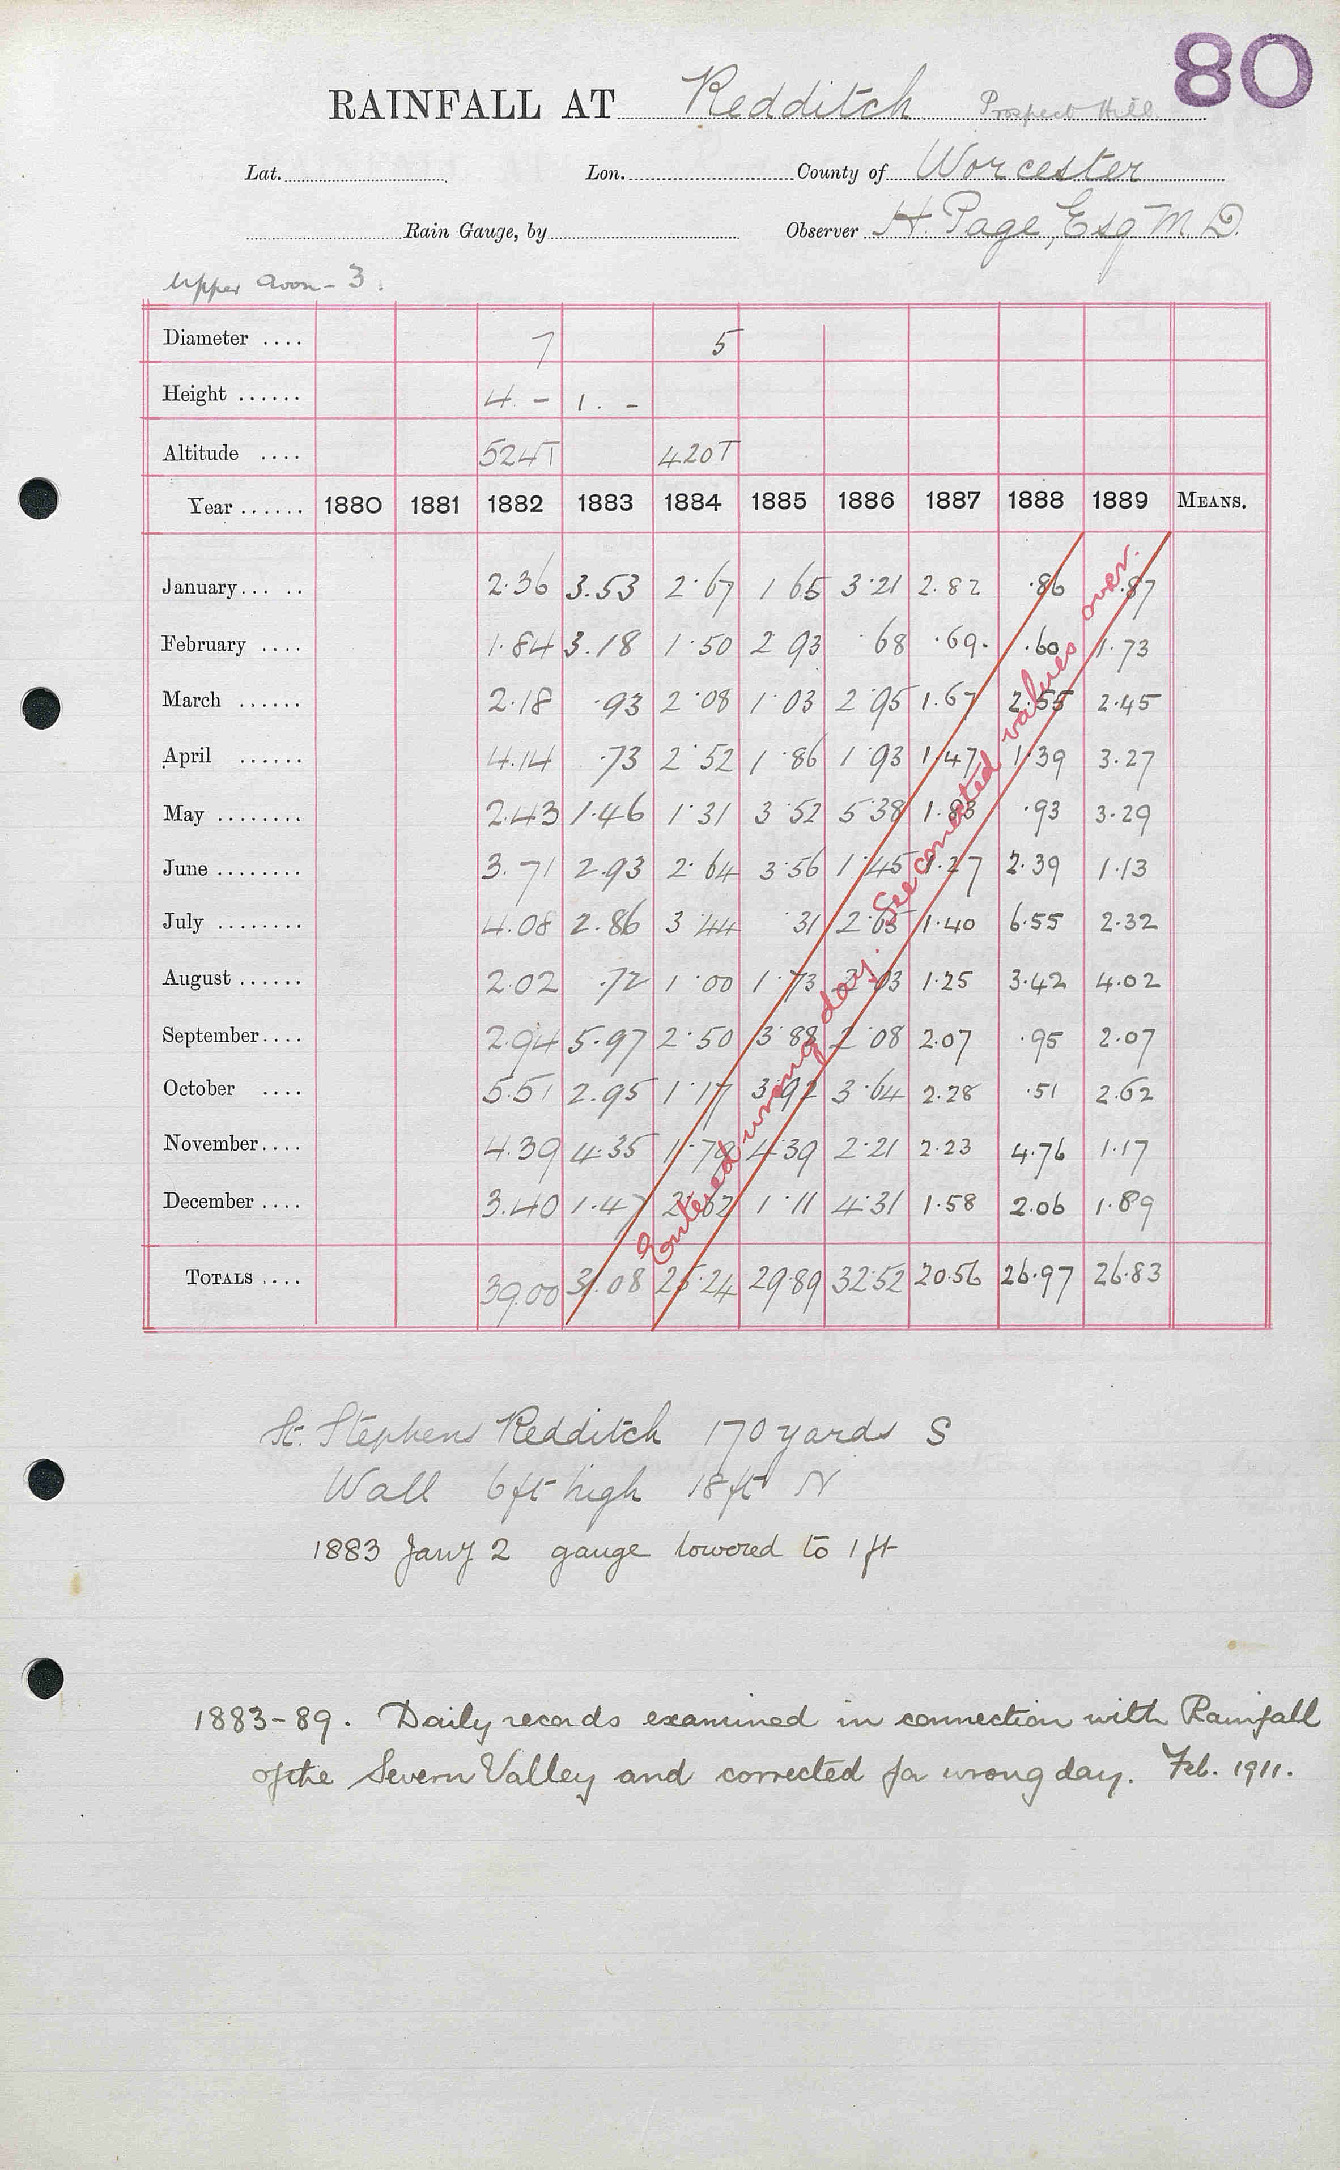 80
RAINFALL AT Redditch Prospect Hill
Lat. Lon. County of Worcester
Rain Gauge, by Observer H. Page, Esq M. D.
Upper Avon - 3.
Diameter .... 7 5
Height ...... 4. - 1. -
Altitude .... 524T 420T
Year ...... 1880 1881 1882 1883 1884 1885 1886 1887 1888 1889 MEANS.
January... .. 2.36 3.53 2.67 1 65 3.21 2.82 .86 .87
February .... 1.84 3.18 1.50 2 93 .68 .69. .60 1.73
March ...... 2.18 .93 2.08 1.03 2.95 1.67 2.55 2.45
April ...... 4.14 .73 2.52 1.86 1.93 1.47 1.39 3.27
May ........ 2.43 1.46 1.31 3.52 5.38 1.83 .93 3.29
June ........ 3.71 2.93 2.64 3.56 1.45 1.27 2.39 1.13
July ........ 4.08 2.86 3.44 31 2.65 1.40 6.55 2.32
August ...... 2.02 .72 1.00 1.73 2.03 1.25 3.42 4.02
September.... 2.94 5.97 2.50 3.88 2.08 2.07 .95 2.07
October .... 5.51 2.95 1.17 3.92 3.64 2.28 .51 2.62
November.... 4.39 4.35 1.79 4.39 2.21 2.23 4.76 1.17
December .... 3.40 1.47 2.62 1.11 4.31 1.58 2.06 1.89
TOTALS .... 39.00 31.08 25.24 29.89 32.52 20.56 26.97 26.83
Entered wrong day. See corrected values over.
St. Stephens Redditch 170 yards S
Wall 6ft high 18ft N
1883 Jany 2 gauge lowered to 1 ft
1883-89. Daily records examined in connection with Rainfall
of the Severn Valley and corrected for wrong day. Feb. 1911.